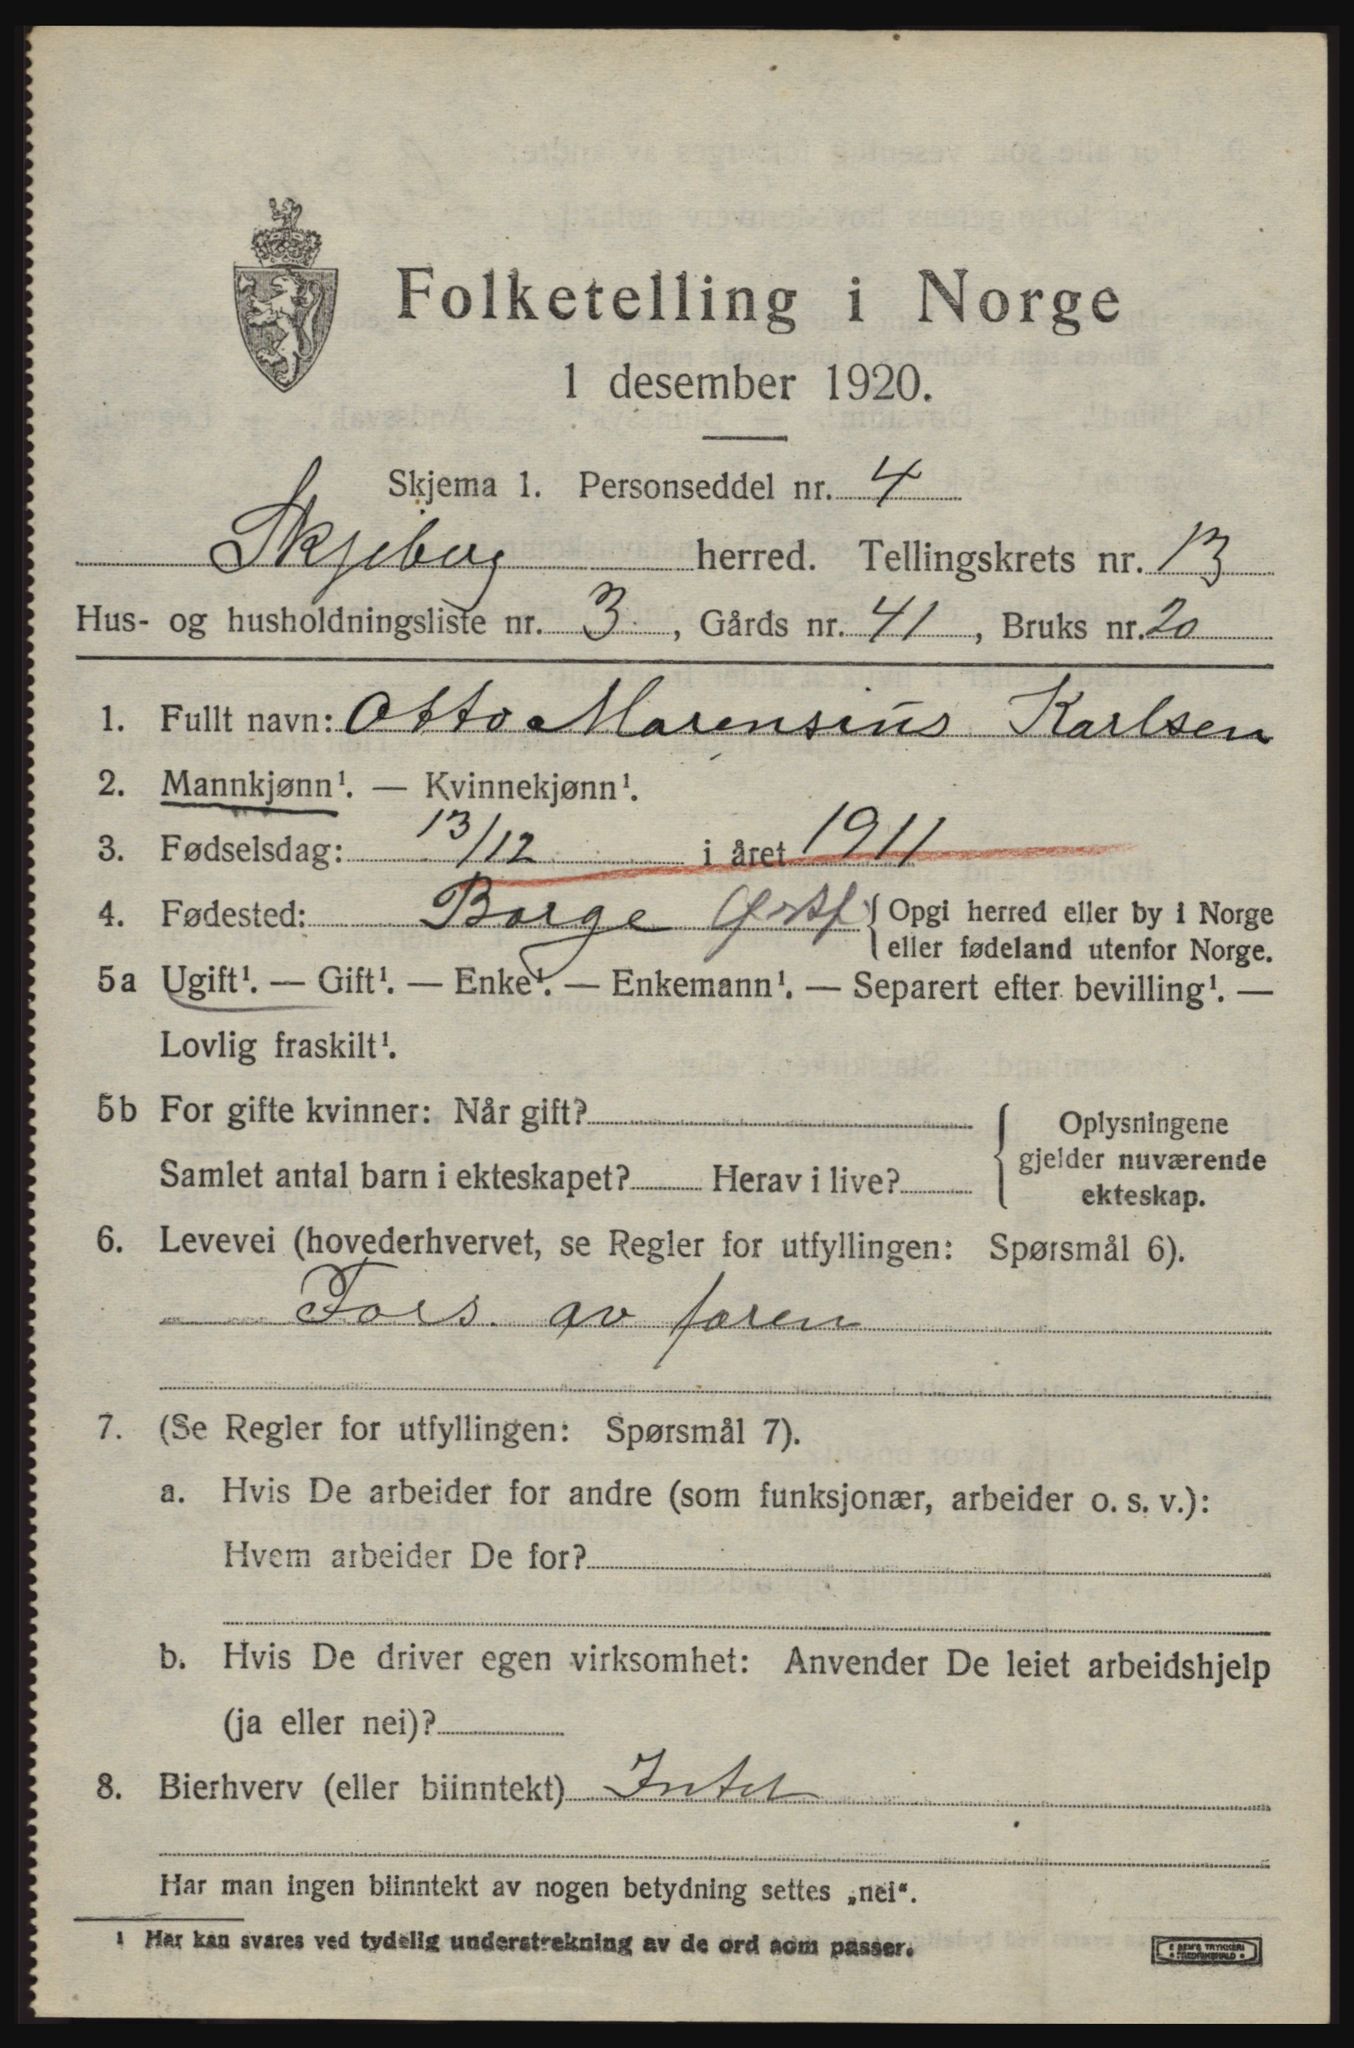 Folketelling i Norge
1 desember 1920.
Skjema 1. Personseddel nr. 4
Skjeberg herred. Tellingskrets nr. 13
Hus- og husholdningsliste nr. 3, Gårds nr. 41, Bruks nr. 20
1. Fullt navn: Otto Marensius Karlsen
2. Mannkjønn¹. — Kvinnekjønn¹.
3. Fødselsdag: 13/12 i året 1911
4. Fødested: Borge Østf { Opgi herred eller by i Norge
eller fødeland utenfor Norge.
5a Ugift¹. — Gift¹. — Enke¹. — Enkemann¹. — Separert efter bevilling¹. —
Lovlig fraskilt¹.
5b For gifte kvinner: Når gift? { Oplysningene
gjelder nuværende
Samlet antal barn i ekteskapet? Herav i live? ekteskap.
6. Levevei (hovederhvervet, se Regler for utfyllingen: Spørsmål 6).
Fors. av faren
7. (Se Regler for utfyllingen: Spørsmål 7).
a. Hvis De arbeider for andre (som funksjonær, arbeider o. s. v.):
Hvem arbeider De for?
b. Hvis De driver egen virksomhet: Anvender De leiet arbeidshjelp
(ja eller nei)?
8. Bierhverv (eller biinntekt) Intet
Har man ingen biinntekt av nogen betydning settes „nei“.
1 Her kan svares ved tydelig understrekning av de ord som passer.
E SEM'S TRYKKERI
FREDRIKSHALD